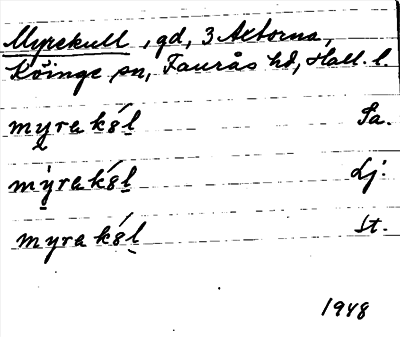 Myrekull, gd, 3 Axtorna,
Köinge sn, Faurås hd, Hall. l.
myrakől Sa.
mýrakől Lj.
myrakől St.
1948